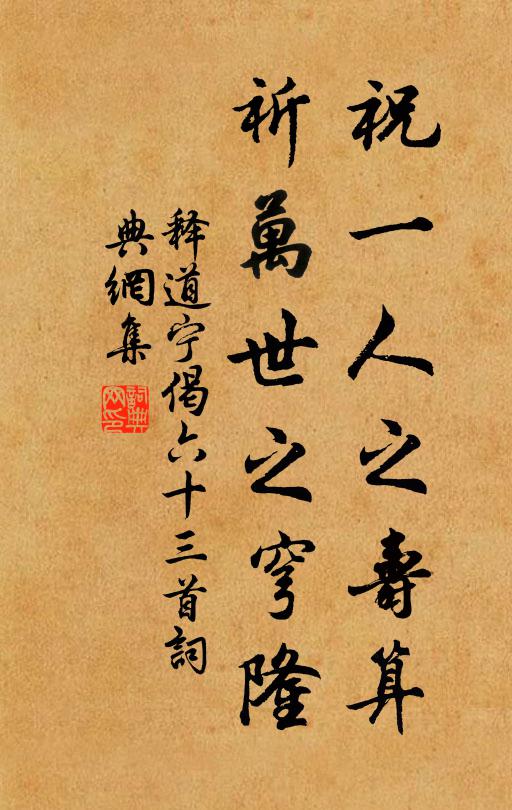 祝一人之壽算
祈萬世之穹隆
释道宁偈六十三首詞
典網集
詞典
网印